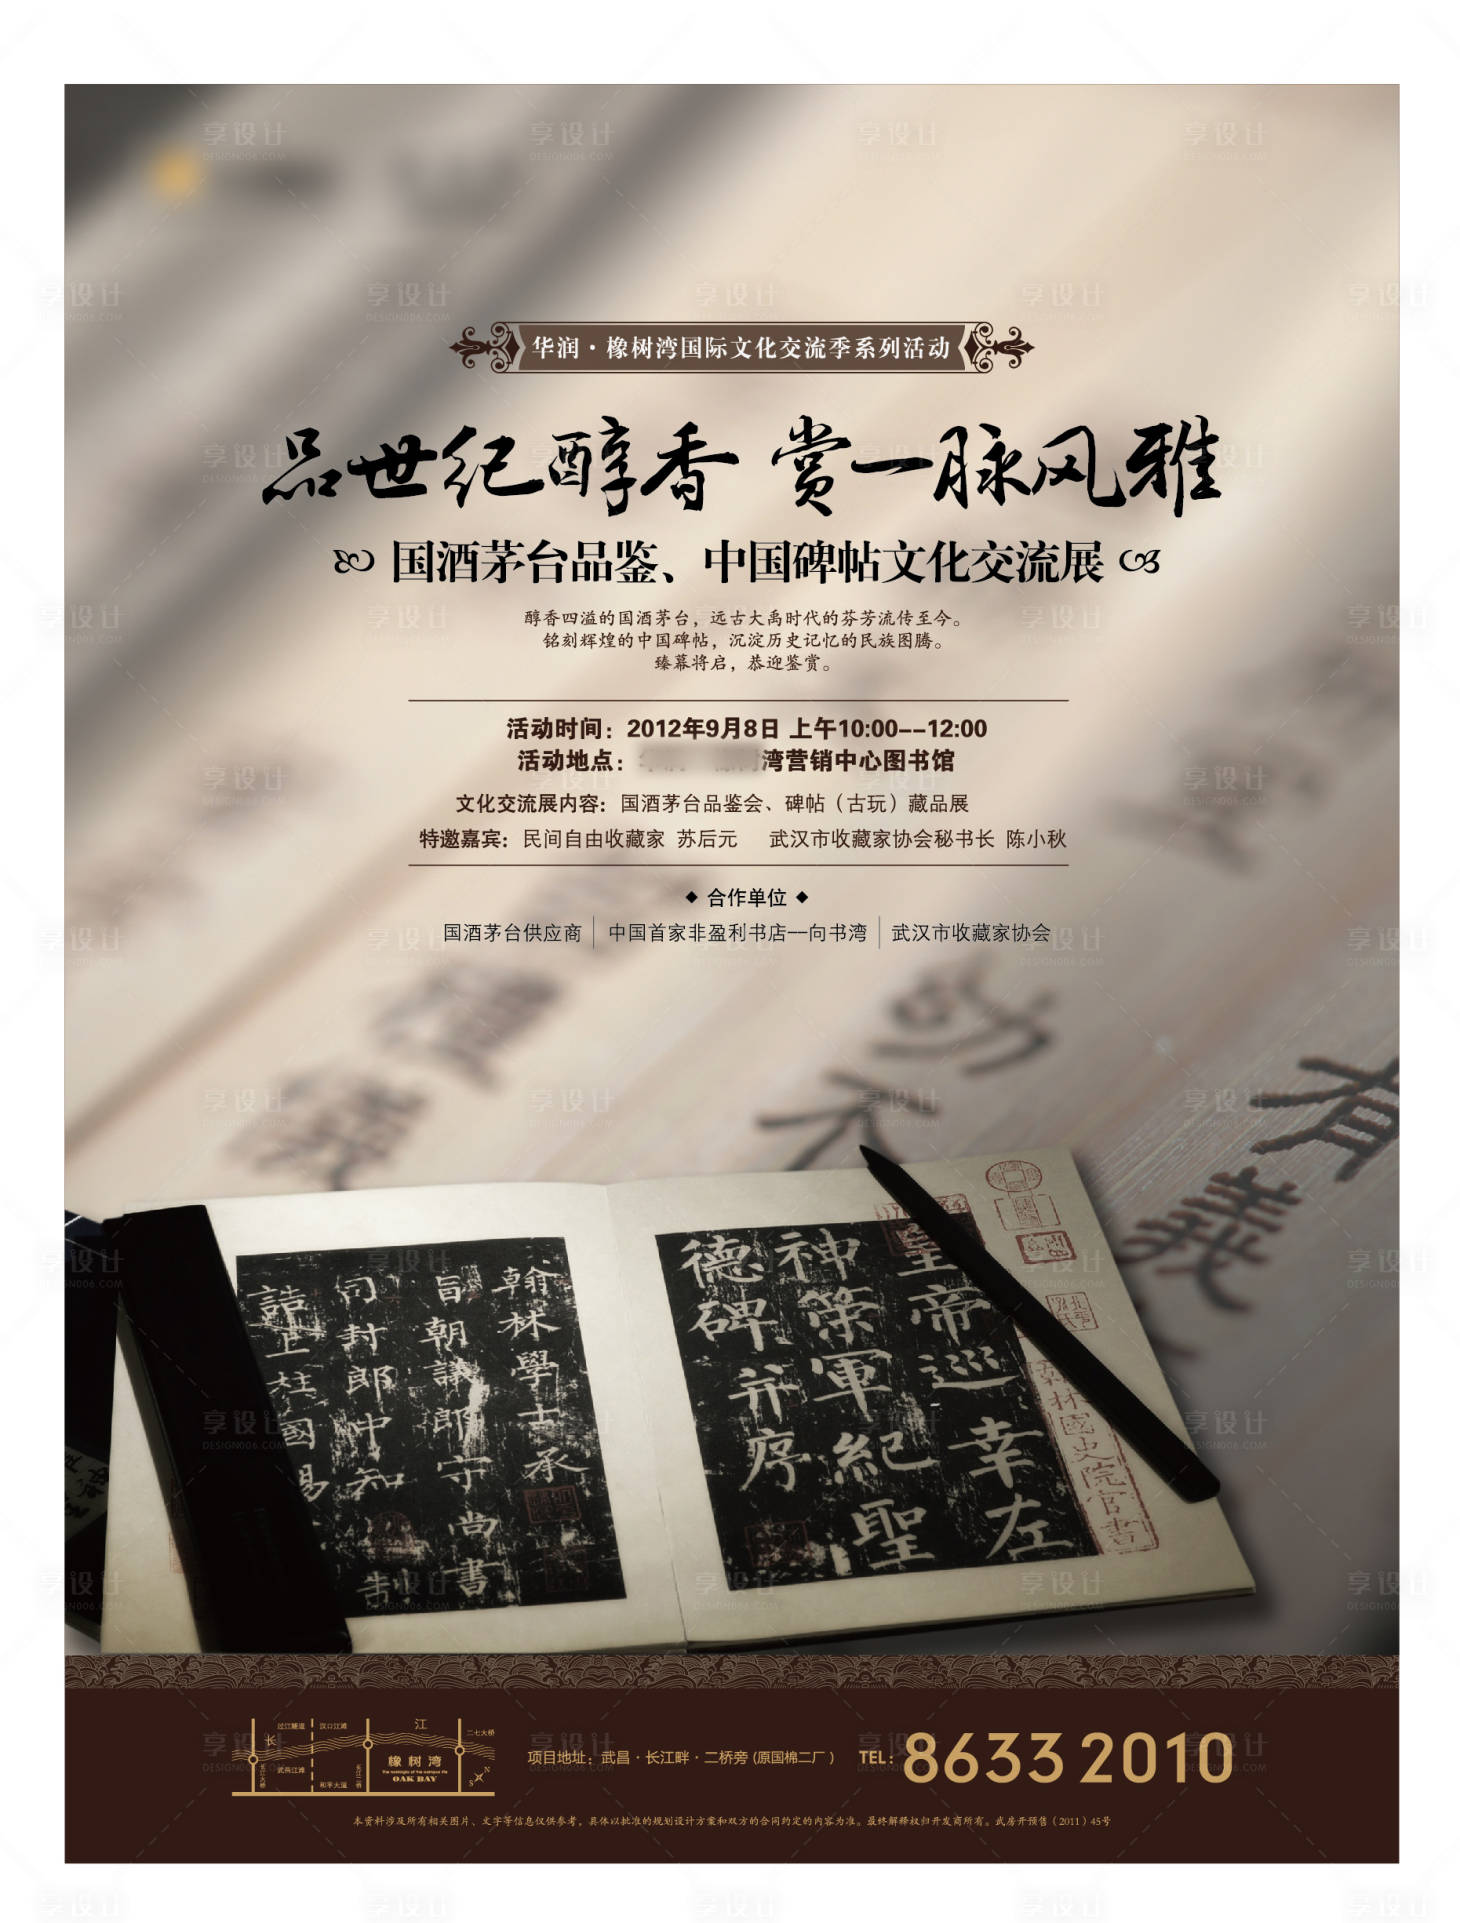 华润·橡树湾国际文化交流季系列活动
品世纪醇香 赏一脉风雅
国酒茅台品鉴、中国碑帖文化交流展
醇香四溢的国酒茅台，远古大禹时代的芬芳流传至今。
铭刻辉煌的中国碑帖，沉淀历史记忆的民族图腾。
臻幕将启，恭迎鉴赏。
活动时间：2012年9月8日 上午10:00--12:00
活动地点：湾营销中心图书馆
文化交流展内容：国酒茅台品鉴会、碑帖（古玩）藏品展
特邀嘉宾：民间自由收藏家 苏后元 武汉市收藏家协会秘书长 陈小秋
◆ 合作单位 ◆
国酒茅台供应商 | 中国首家非盈利书店—向书湾 | 武汉市收藏家协会
有
義
皇帝巡幸左
神策軍紀聖
德碑并序
翰林學士承
旨朝議郎守尚書
司封郎中知制
誥上柱國賜
翰林國史院官書
过江隧道
汉口江滩
江
二七大桥
长
武昌江滩
和平大道
橡树湾
OAK BAY
N
S
项目地址：武昌·长江畔·二桥旁(原国棉二厂) TEL：8633 2010
本资料涉及所有相关图片、文字等信息仅供参考，具体以批准的规划设计方案和双方的合同约定的内容为准。最终解释权归开发商所有。武房开预售（2011）45号
享设计
DESIGN006.COM